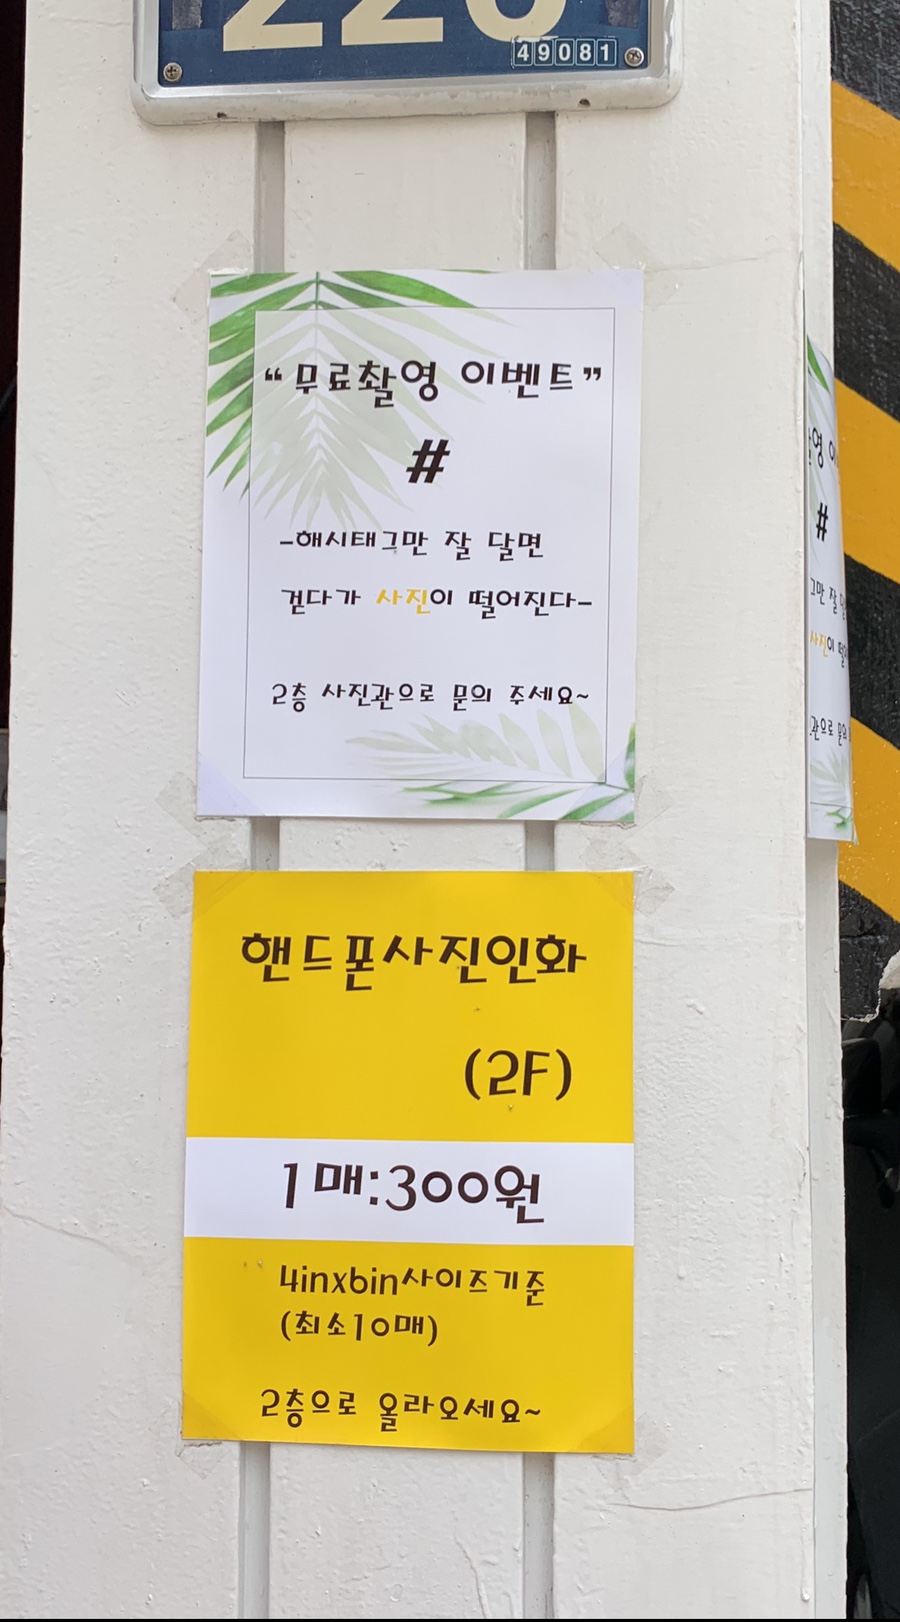 226
49081
“무료촬영 이벤트”
#
-해시태그만 잘 달면
걷다가 사진이 떨어진다-
2층 사진관으로 문의 주세요~
핸드폰사진인화
(2F)
1매:300원
4inx6in사이즈기준
(최소10매)
2층으로 올라오세요~
#